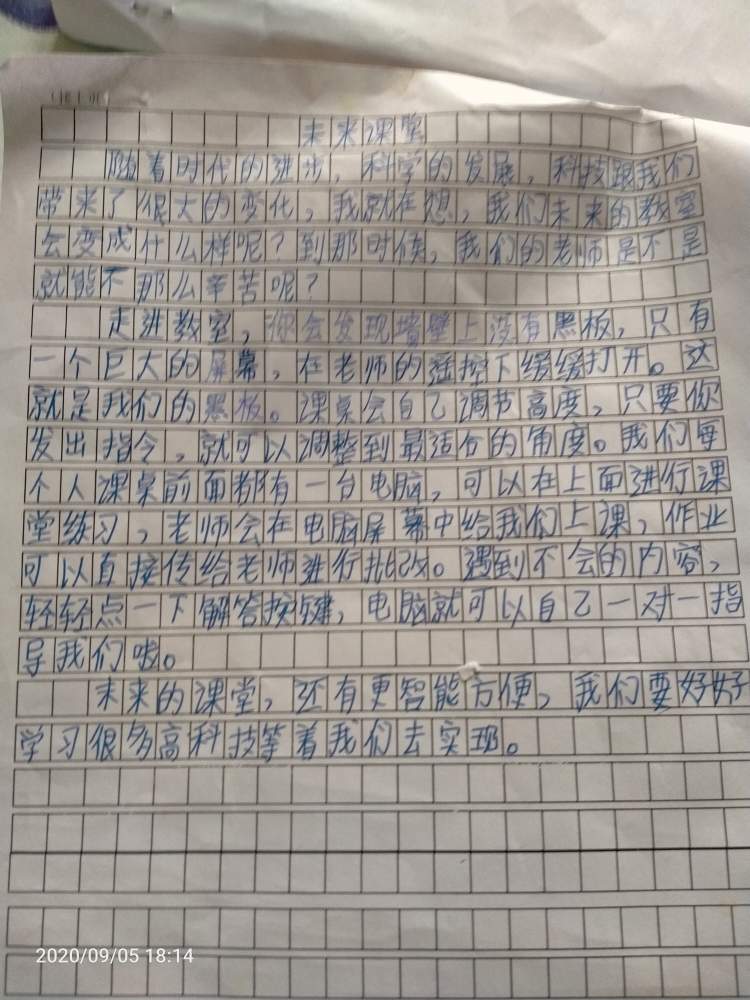 未来课堂
随着时代的进步，科学的发展，科技跟我们
带来了很大的变化，我就在想，我们未来的教室
会变成什么样呢？到那时候，我们的老师是不是
就能不那么辛苦呢？
走进教室，你会发现墙壁上没有黑板，只有
一个巨大的屏幕，在老师的遥控下缓缓打开。这
就是我们的黑板。课桌会自己调节高度，只要你
发出指令，就可以调整到最适合的角度。我们每
个人课桌前面都有一台电脑，可以在上面进行课
堂练习，老师会在电脑屏幕中给我们上课，作业
可以直接传给老师进行批改。遇到不会的内容，
轻轻点一下解答按键，电脑就可以自己一对一指
导我们啦。
未来的课堂，还有更智能方便，我们要好好
学习很多高科技等着我们去实现。
2020/09/05 18:14